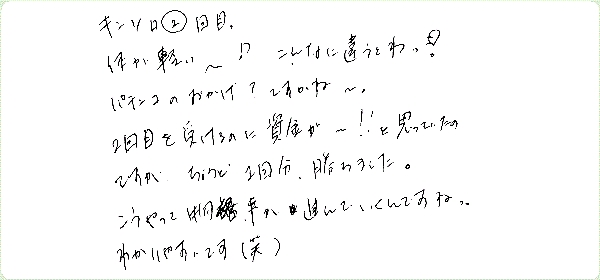 キンソロ②回目。
体が軽い〜!? こんなに違うとわっ!!
パチンコのおかげ?ですかね〜。
2回目を受けるのに資金が〜!!と思っていたの
ですが ちょうど 2回分、勝ちました。
こうやって 確率が 進んでいくんですねっ
わかりやすいです(笑)